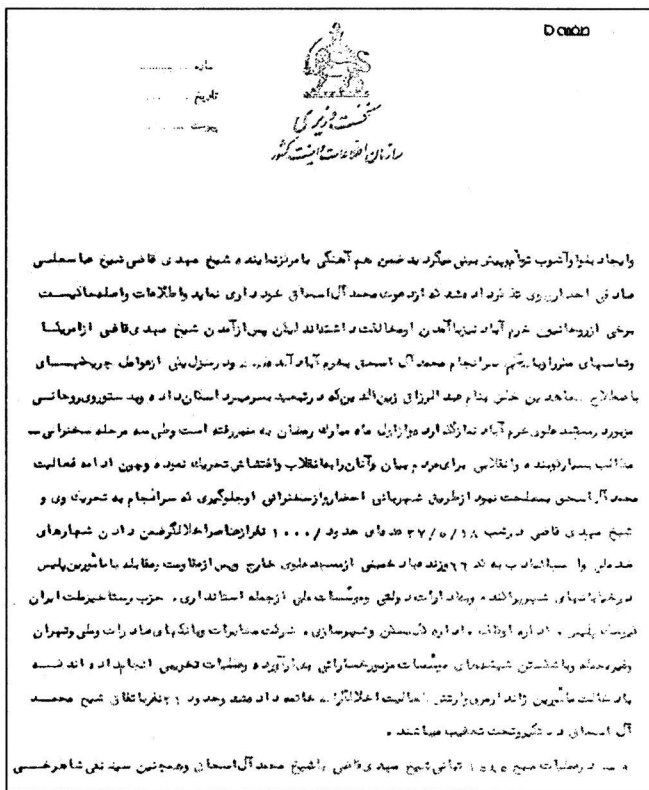 شماره
تاریخ
پیوست
نخست وزیری
سازمان اطلاعات و امنیت کشور
وایجاد بلوا وآشوب توأم پیش بینی میگردید ضمن هم آهنگی با مرکز نماینده شیخ مهدی قاضی شیخ عباسعلی
صادقی احضار وبوی تذکر داده شد که از دعوت محمد آل اسحاق خود داری نماید واطلاعات واصله حاکیست
برخی از روحانیون خرم آباد نیز با آمدن او مخالفت داشته اند لیکن پس از آمدن شیخ مهدی قاضی از امریکا
وتماسهای مکرر او سرانجام محمد آل اسحق بخرم آباد آمده ود رمنزل یکی از عوامل چریکهای
باصطلاح مجاهدین خلق بنام عبد الرزاق زین الدین که در تبعید بسر میبرد اسکان داده
مزبور در مسجد علوی خرم آباد نماز گذارده واز اول ماه مبارک رمضان به منبر رفته است وطی سه مرحله سخنرانی
مطالب بسیار کوبنده وانقلابی برای مردم بیان وآنان را به انقلاب واغتشاش تحریک نموده وچون ادامه فعالیت
محمد آل اسحق بمصلحت نبود از طریق شهربانی احضار واز سخنرانی او جلوگیری که سرانجام به تحریک وی و
شیخ مهدی قاضی در شب ۳۷/۵/۱۸ عده ای حدود ۱۰۰۰/ نفر از عناصر اخلالگر ضمن دادن شعارهای
ضد ملی وزنده باد خمینی از مسجد علوی خارج وپس از مقاومت ومقابله با مأمورین پلیس
در خیابانهای شهر پراکنده وبه ادارات دولتی ومؤسسات ملی از جمله استانداری، حزب رستاخیز ملت ایران
پلیس، اداره اوقاف، اداره کل مسکن وشهرسازی، شرکت مخابرات وبانکهای صادرات وملی وتهران
وغیره حمله وبا شکستن شیشه های مؤسسات مزبور خساراتی ببار آورده وعملیات تخریبی انجام داده اند که
با دخالت مأمورین ژاندارمری وارتش به فعالیت اخلالگرانه خاتمه داده شد وحدود ۲۱ نفر باتفاق شیخ محمد
آل اسحاق دستگیر وتحت تعقیب میباشند.
عملیات صبح تبانی شیخ مهدی قاضی با شیخ محمد آل اسحاق وهمچنین سید نقی شاهرخی